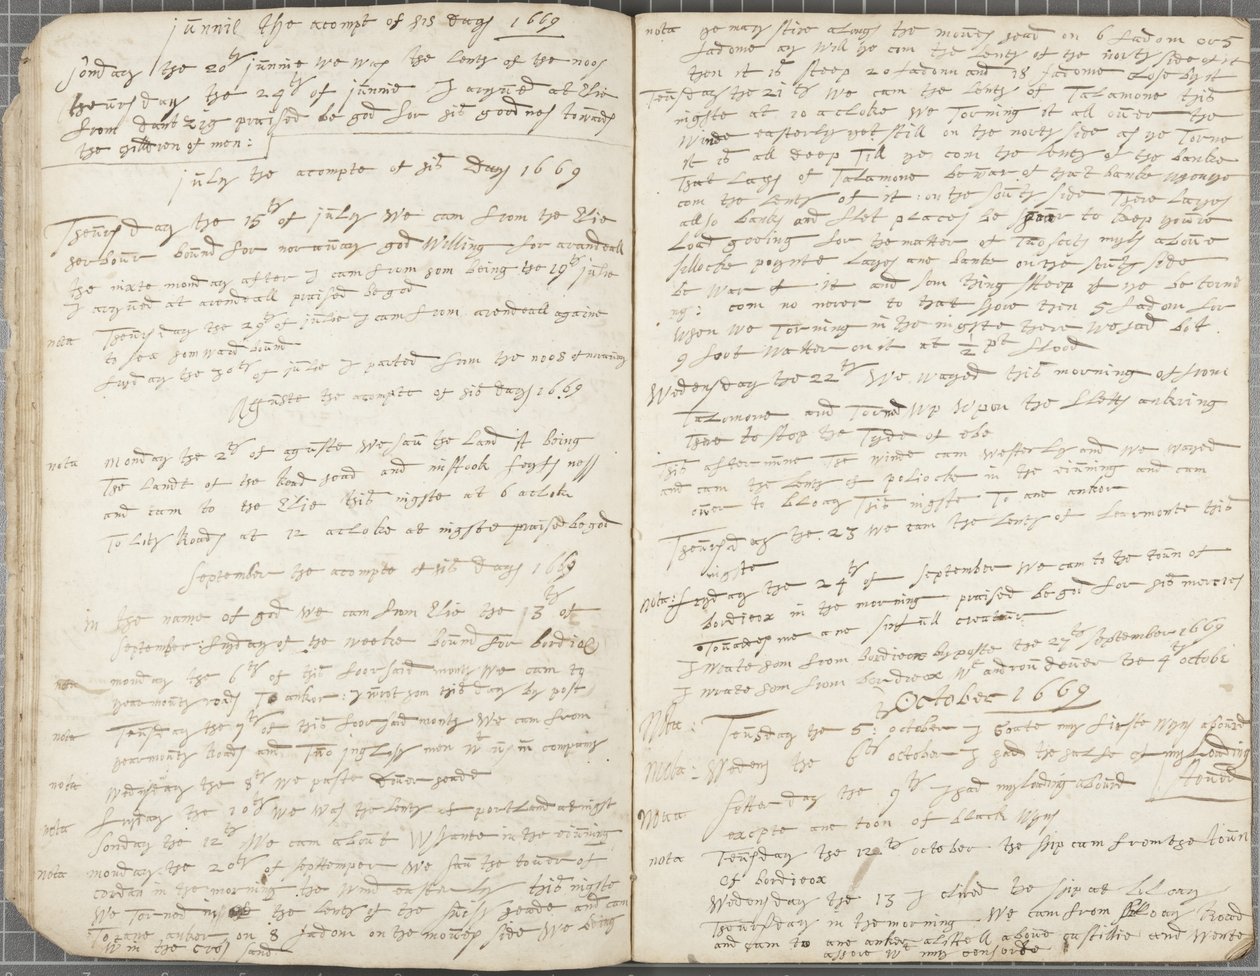 junnie the acompt of his days 1669
Sonday the 20th junnie we was the lenth of the noos
theursday the 24th of junnie I aryued at Elie
from dantzig praised be god for his goodnes towards
the children of men:
july the acompte of his days 1669
Theursday the 15th of july We cam from the Elie
herbour bound for noraway god Willing for arandeall
the nixte monday after I cam from hom being the 19th julie
I aryued at arendeall praised be god
nota Theursday the 29th of julie I cam from arendeall againe
to sea homward bound
fryday the 30th of julie I parted from the noos of noraway
Aguste the acompte of his days 1669
nota Monday the 2th of aguste We sau the land it being
The landt of the head and mistook fyfs ness
and cam to the Elie this nighte at 6 acloke
To lith Roads at 12 acloke at nighte praised be god
September the acompte of his days 1669
in the name of god We cam from Elie the 13th of
September fryday of the weeke bound for bordiox
nota monday the 6th of this foorsaid month We cam to
yearmouth roads To anker: I wrot hom this day by post
nota Teusday the 7th of this foorsaid month We cam from
yearmouth Roads and Two inglish men wt us in company
nota Wednsday the 8th we paste douer heade
fryday the 10th We was the lenth of portland at night
nota Sonday the 12th We cam about Wshante in the euinning
nota monday the 20th of September We sau the touer of
cordan in the morning the wind easterly this nighte
We torned in the lenth of the heade and cam
To ane anker on 8 fadom on the side We being
W in the cros sand
nota ye may stire alongs the moues head on 6 fadom or 5
fadome ay will ye com the lenth of the north side of it
then it is steep 20 fadom and 18 fadome close by it
Teusday the 21th We cam the lenth of Talamone this
nighte at 10 acloke We Torning it all ouer the
Winde easterly yet still on the north side as ye Torne
it is all deep Till ye com the lenth of the banke
That lays of Talamone be war of that banke
com the lenth of it: on the south side There layes
allso banks and flet places be to keep youre
Load goeing for the matter of Two scots myls aboue
poynte layes ane banke on the south side
be war of it and som thing steep if ye be torni
ng: com no nerer to that shore then 5 fadom for
When We Torning in the nighte there We had bot
9 foot Watter on it at 1/2 pt flood
Wednsday the 22th We wayed this morning of from
Talomone and Torned Wp Wpon the flets ankring
There to stop the Tyde of ebe
This after nune The winde cam Westerly and We wayed
and cam the lenth of poliocke in the euinning and cam
ouer to bloay This nighte To ane anker
Theursday the 23 We cam the lenth of Learmonte this
nighte
nota: fryday the 24th of September We cam to the toun of
bordieox in the morning praised be god for his mercies
Towards me ane sinfull creatuir
I Wrate hom from bordieox by poste the 27th September 1669
I wrate hom from bordieox Wt the 4th octobr
October 1669
Nota: Teusday the 5: october I gate my firste Wyns abourd
Nota: Wednsy the 6th october I had the halfe of my loading
abourd
Nota Satterday the 9th I had my loding abourd
excepte ane toon of black Wyns
nota Teusday the 12th october the ship cam from the toun
of bordieox
Wednsday the 13 I cliред the ship at bloay
Theursday in the morning We cam from bloay Road
and cam to ane anker a littell aboue castillie and Wente
assore Wt my